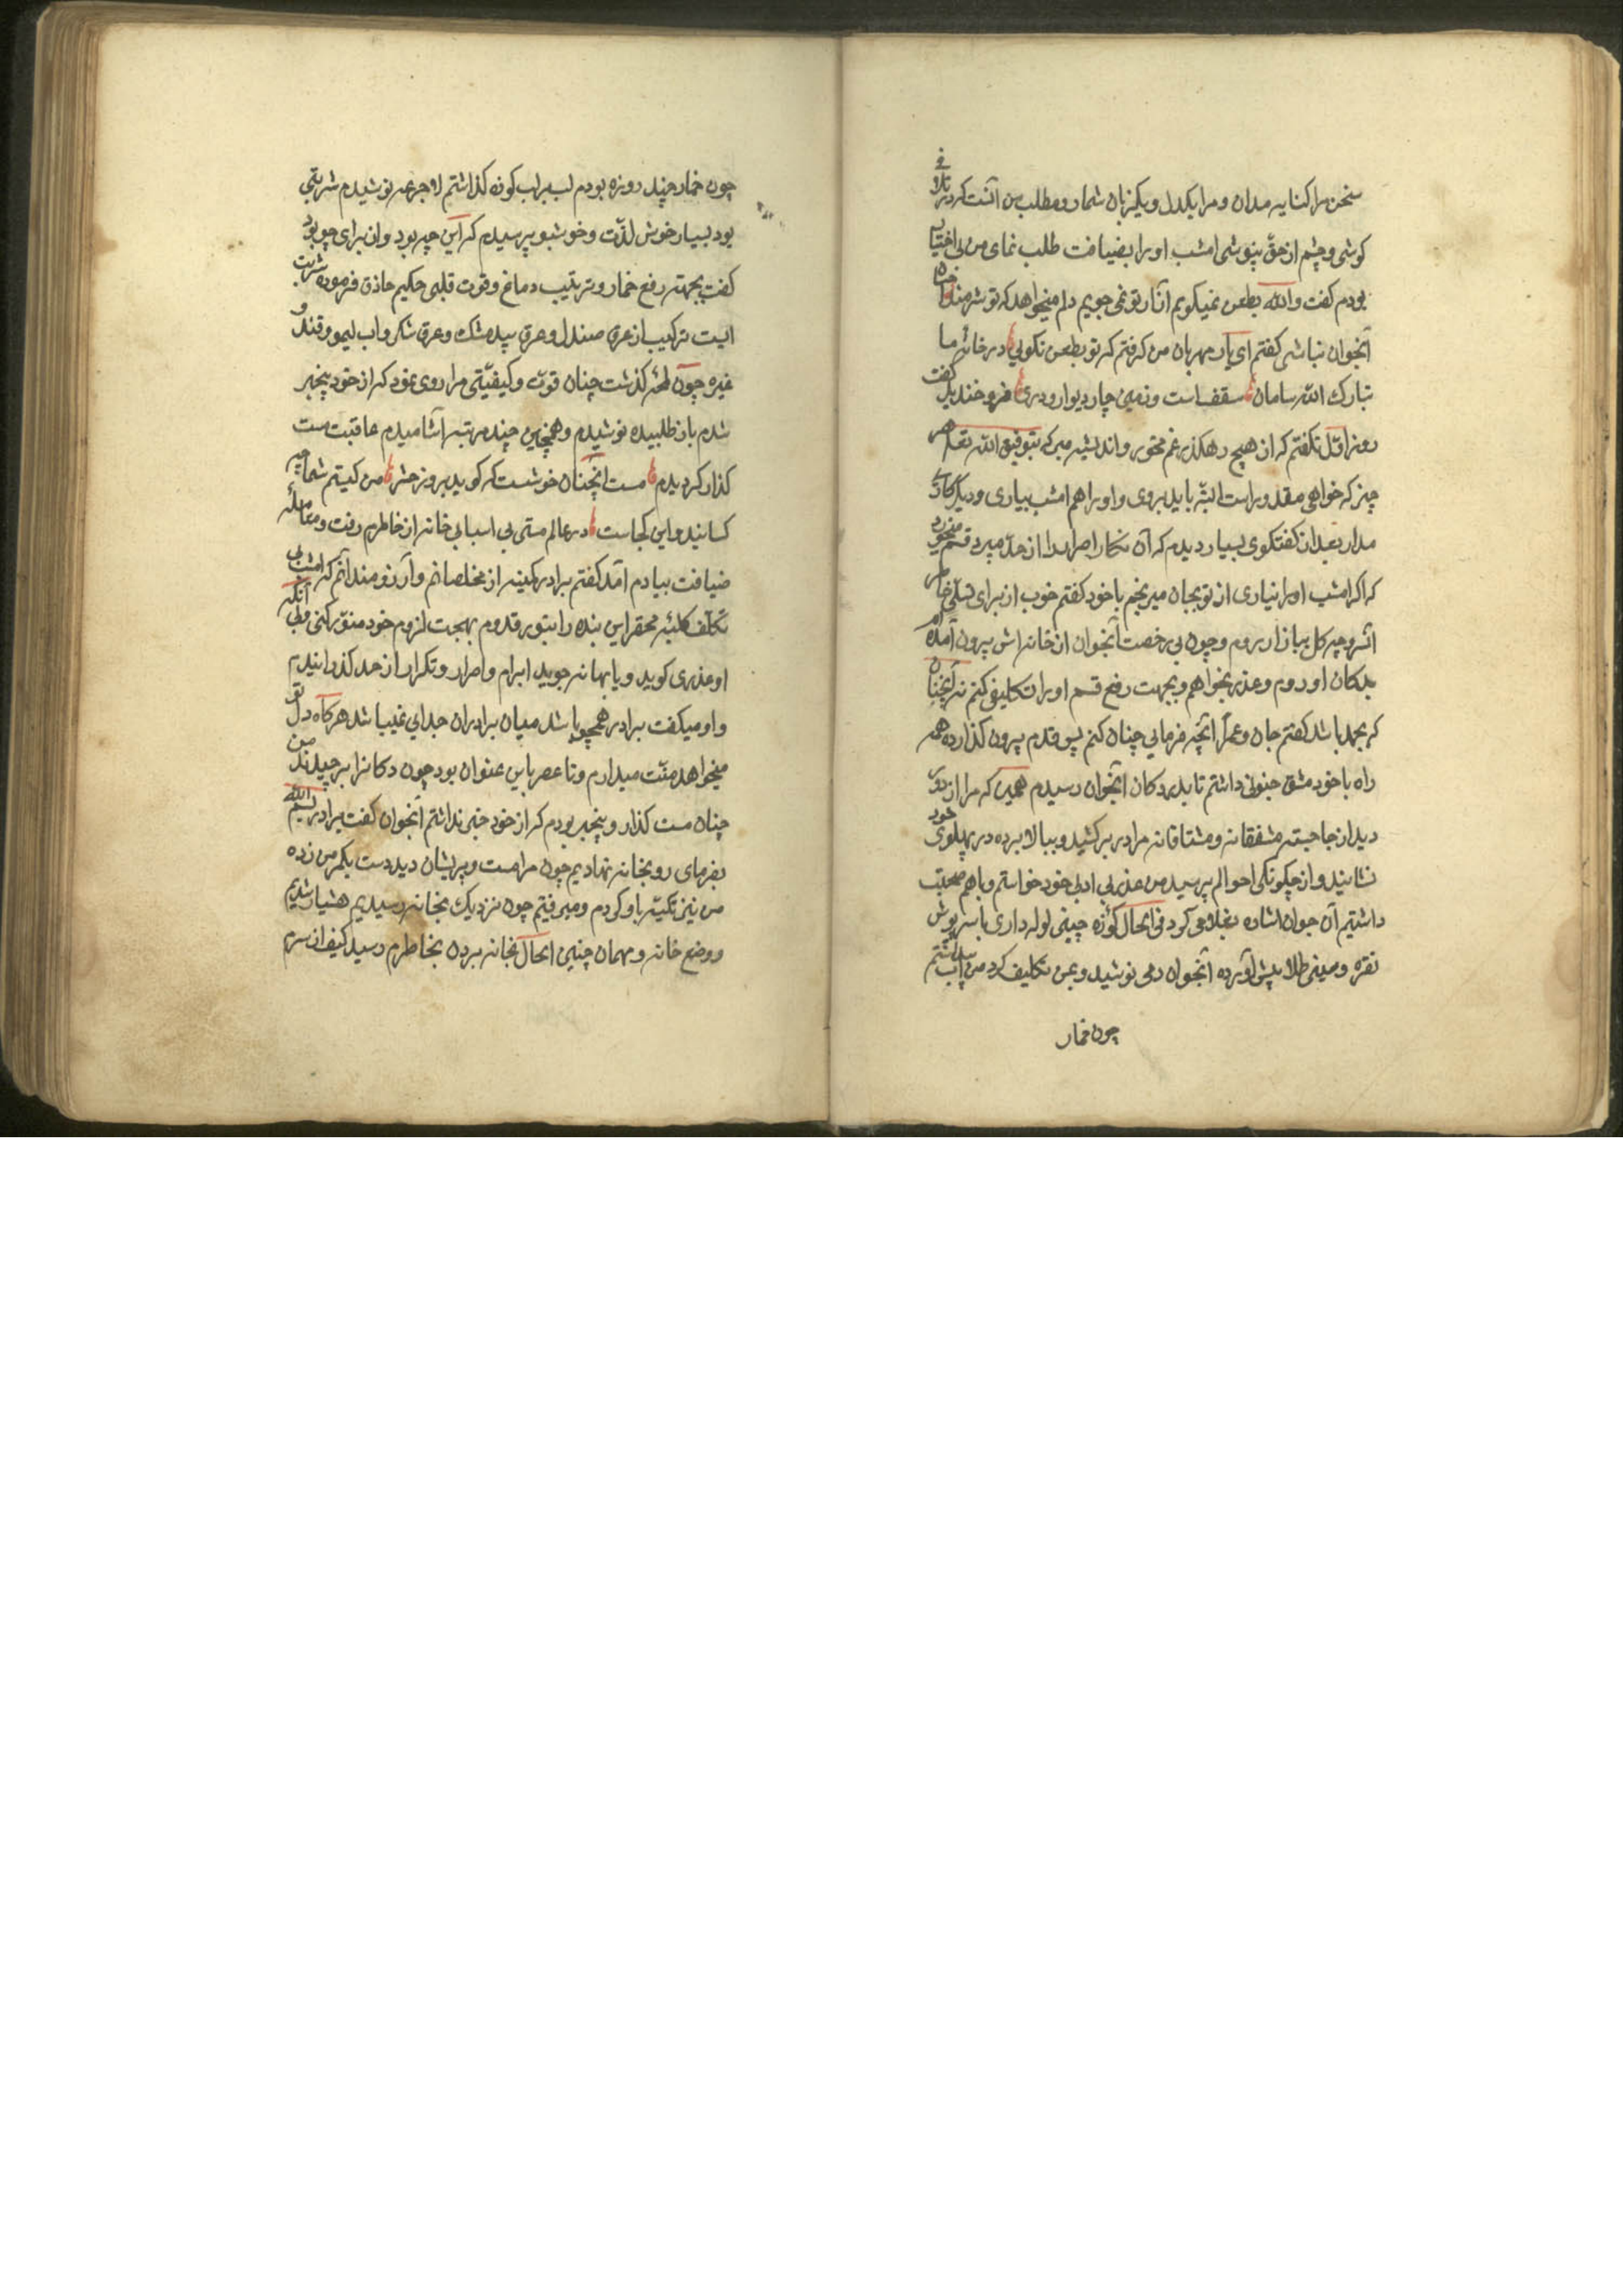 سخن مرا کنایه مدان و مرا یکدل و یکزبان شمار و مطلب من آنست که در تلافی
کوشی و چشم از حق نپوشی امشب او را بضیافت طلب نمای من بی اختیار
بودم گفت والله بطعن نمیگویم آثار تو نمی جویم دلم میخواهد که تو شرمنده
آنجوان نباشی گفتم ای یار مهربان من گرفتم که تو بطعن نگویی در خانه ما
تبارک الله سامان سقف است و زمین چار دیوار و دری فرو خندید گفت
روز اول نگفتم که از هیچ رهگذر غم مخور و اندیشه مبر که بتوفیق الله تعالی هر
چیز که خواهی مقدور است البته باید بروی و او را هم امشب بیاری و دیگر کار
مدار بعد از گفتگوی بسیار دیدم که آن نگار اصرار را از حد میبرد قسم میخورد
که اگر امشب او را نیاری از تو بجان میرنجم با خود گفتم خوب از برای تسلی خاطر
اش و چیر کل ببازار روم و چون بی رخصت آنجوان از خانه اش بیرون آمده ام
بدکان او روم و عذر بخواهم و بجهت رفع قسم او را تکلیف کنم نه آنچنان
که بجد باشد گفتم جان و عمرا آنچه فرمایی چنان کنم پس قدم بیرون گذارده همه
راه با خود مشق جنونی داشتم تا بدر دکان آنجوان رسیدم همین که مرا از دور
دید از جا جسته مشفقانه و مشتاقانه مرا در بر کشید و ببالا برده در پهلوی خود
نشانید و از چگونگی احوالم پرسید من عذر بی ادبی خود خواستم و با هم صحبت
داشتیم آن جوان اشاره بغلامی کرد فی الحال کوزه چینی لوله داری با سرپوش
نقره و سینی طلا پیش آورده آنجوان دمی نوشید و بمن تکلیف کرد من
چون خمار
چون خمار چند روزه بودم لب بر لب کوزه گذاشتم و جرعه نوشیدم شربتی
بود بسیار خوش لذت و خوشبو پرسیدم که این چه بود و از برای چه بود
گفت بجهته رفع خمار و ترتیب دماغ و قوت قلبی حکیم حاذق فرموده شربت
ایست ترکیب از عرق صندل و عرق بیدمشک و عرق شکر و آب لیمو و قند و
غیره چون لمحه گذشت چنان قوت و کیفیتی مرا روی نمود که از خود بیخبر
شدم باز طلبیده نوشیدم و همچنین چند مرتبه آشامیدم عاقبت مست
گذار گردیدم مست آنچنان خوشست که گوید بروز حشر من کیستم شما چه
کسانید و این کجاست در عالم مستی بی اسبابی خانه از خاطرم رفت و معامله
ضیافت بیادم آمد گفتم برادر کمینه از مخلصانم و آرزومند آنم که امشب بی
تکلف کلبه محقر این بنده را بنور قدوم بهجت لزوم خود منور کنی ولی آنکه
او عذری گوید و یا بهانه جوید ابرام و اصرار و تکرار از حد گذرانیدم
و او میگفت برادر همچو باشد میان برادران جدایی نمیباشد هرگاه دل تو
میخواهد منت میدارم و تا عصر باین عنوان بود چون دکانرا برچیدند من
چنان مست گذار و بیخبر بودم که از خود خبر نداشتم آنجوان گفت برادر بسم الله
بفرمای رو بخانه نهادیم چون مرا مست و پریشان دید دست بکمر من زده
من نیز تکیه باو کردم و میرفتیم چون نزدیک بخانه رسیدیم هشیار شدم
و وضع خانه و مهمان چنین الحال بخانه بردن بخاطرم رسید کیف از سرم